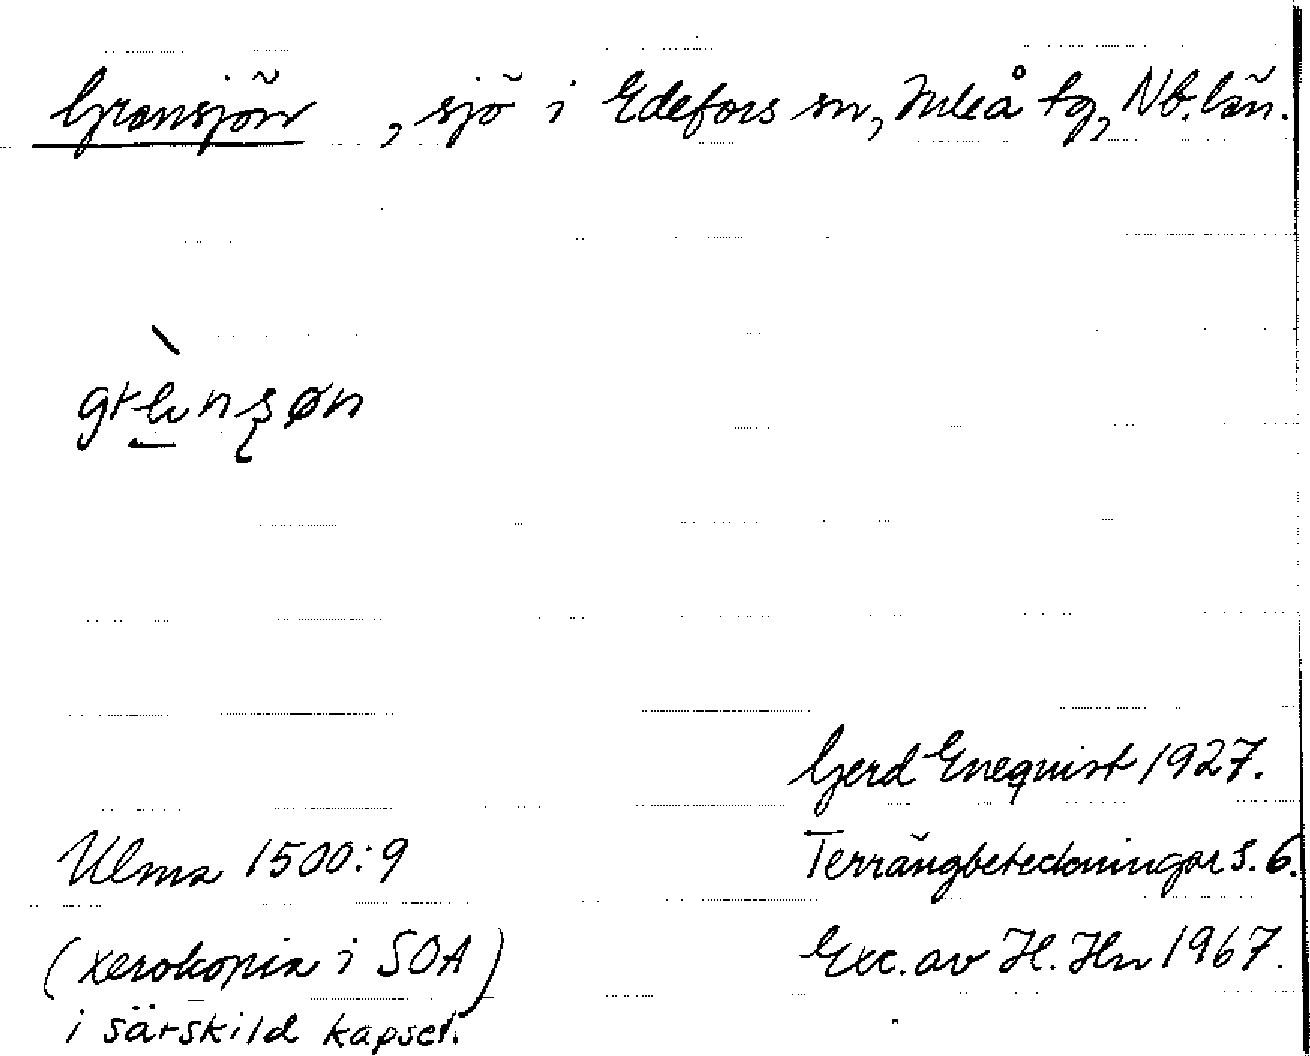 Gransjön, sjö i Edefors sn, Luleå tg, Nb. län.
Gerd Enequist 1927.
Ulma 1500:9 Terrängbeteckningar s. 6.
(xerokopia i SOA) Exc. av H. Hn 1967.
i särskild kapsel.